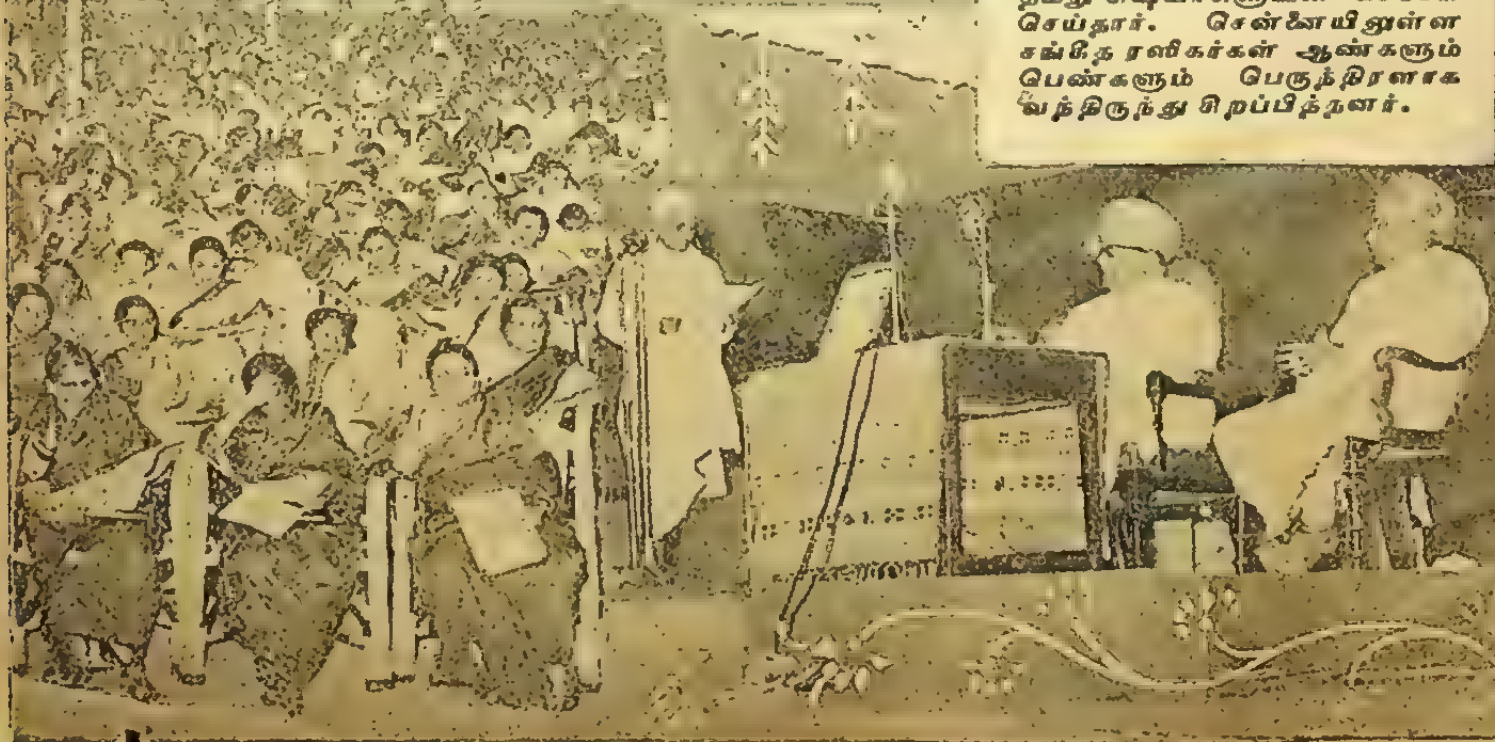 செய்தார். சென்னையிலுள்ள
சங்கீத ரஸிகர்கள் ஆண்களும்
பெண்களும் பெருந்திரளாக
வந்திருந்து சிறப்பித்தனர்.